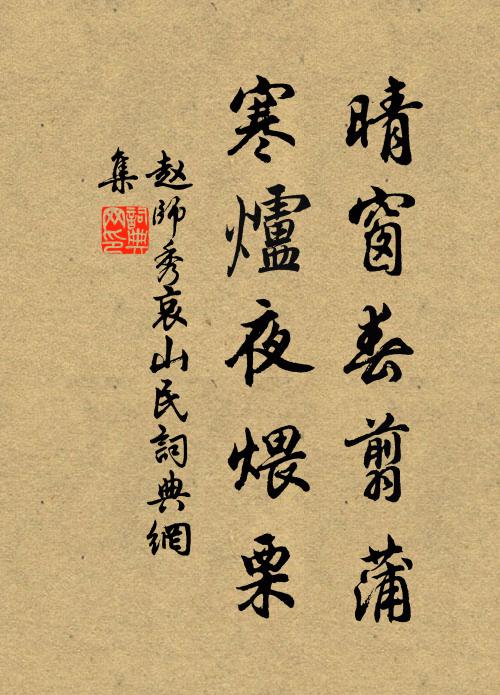 晴窗春翦蒲
寒爐夜煨栗
赵師秀哀山民詞典網
集
詞典網印